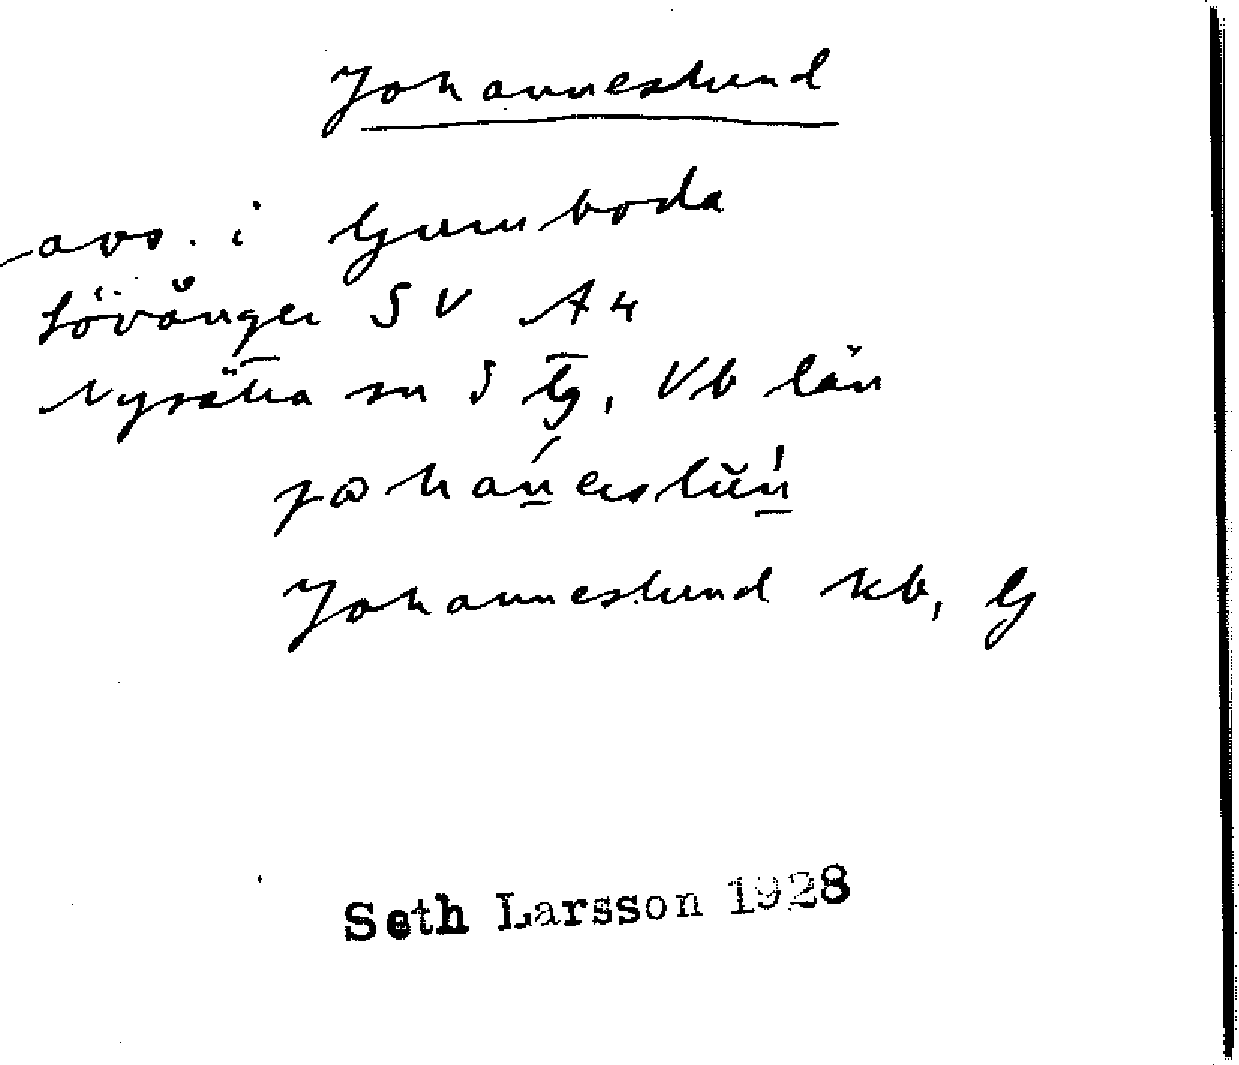 Johanneslund
avs. i Gumboda
Lövånger SV A4
Nysätra sn S tg, Vb län
Johanneslund kb, G
Seth Larsson 1928